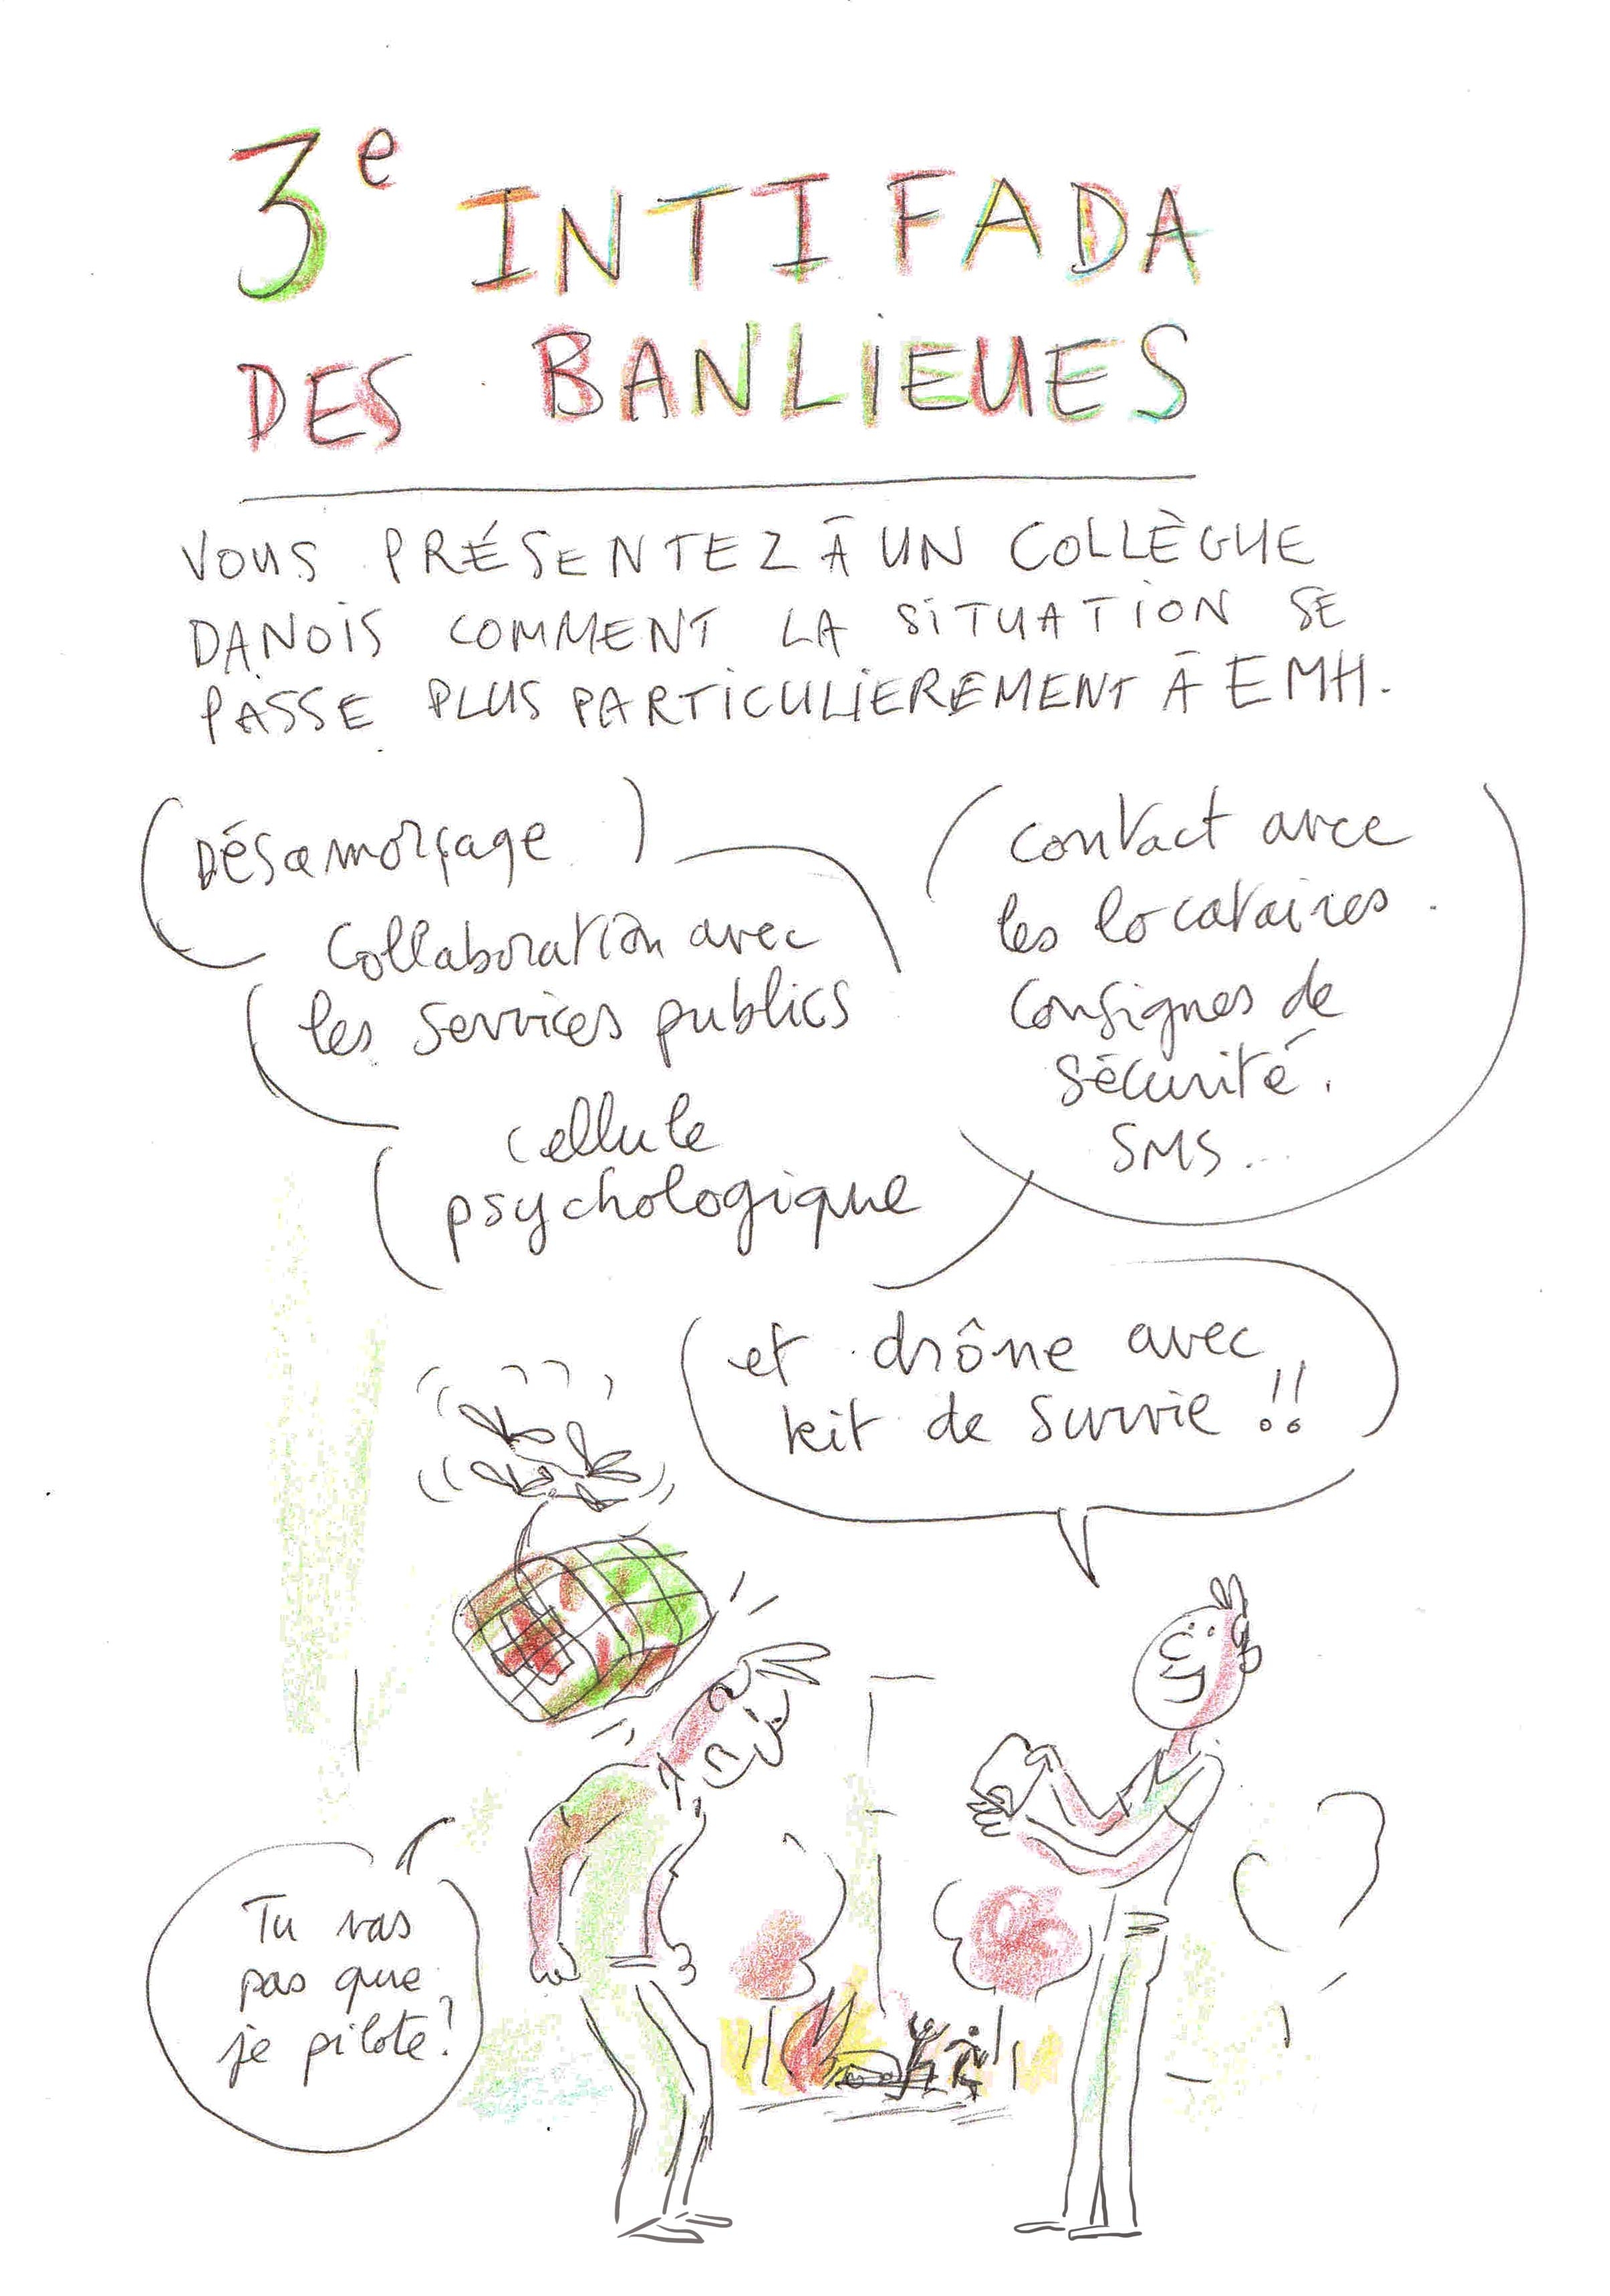 3e INTIFADA
DES BANLIEUES
VOUS PRÉSENTEZ À UN COLLÈGUE
DANOIS COMMENT LA SITUATION SE
PASSE PLUS PARTICULIEREMENT À EMH.
Désamorçage
Collaboration avec
les services publics
cellule
psychologique
contact avec
les locataires.
Consignes de
sécurité.
SMS...
et drône avec
kit de survie!!
Tu vas
pas que
je pilote!